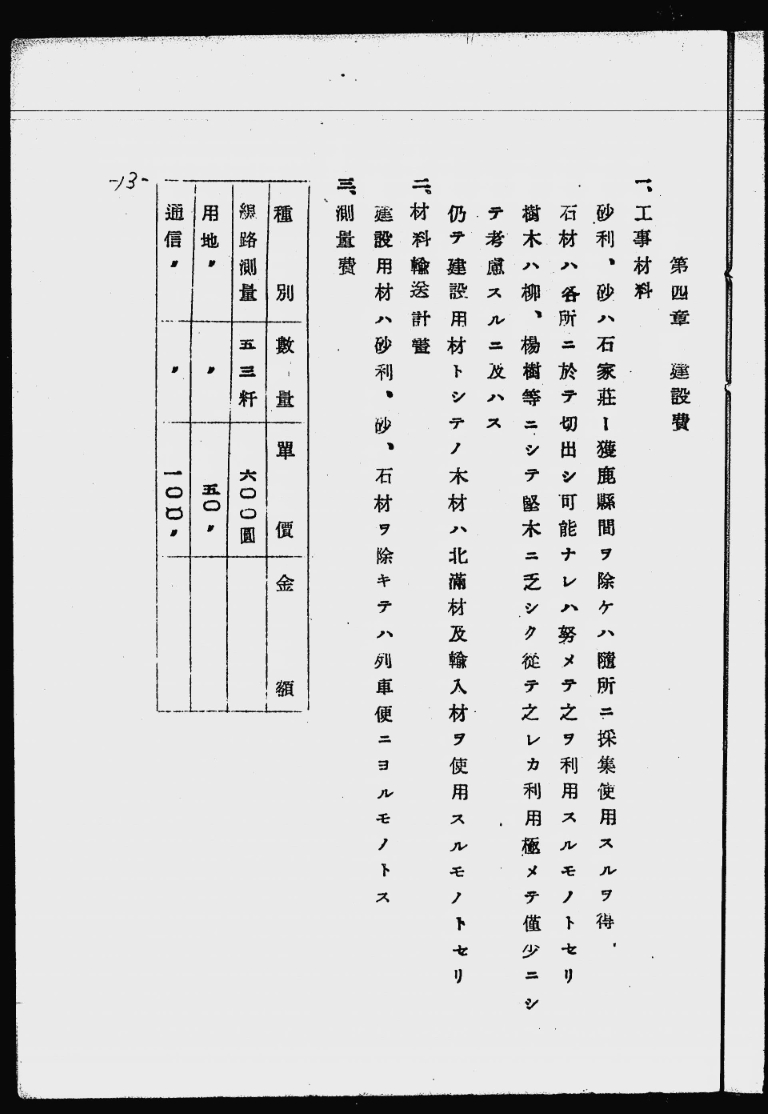 第四章 建設費
一、工事材料
砂利、砂ハ石家莊ー獲鹿縣間ヲ除ケハ隨所ニ採集使用スルヲ得、
石材ハ各所ニ於テ切出シ可能ナレハ努メテ之ヲ利用スルモノトセリ
樹木ハ柳、楊樹等ニシテ堅木ニ乏シク從テ之レカ利用極メテ僅少ニシ
テ考慮スルニ及ハス
仍テ建設用材トシテノ木材ハ北滿材及輸入材ヲ使用スルモノトセリ
二、材料輸送計畫
建設用材ハ砂利、砂、石材ヲ除キテハ列車便ニヨルモノトス
三、測量費
種別 數量 單價 金額
線路測量 五三粁 六〇〇圓
用地〃 〃 五〇〃
通信〃 〃 一〇〇〃
-13-